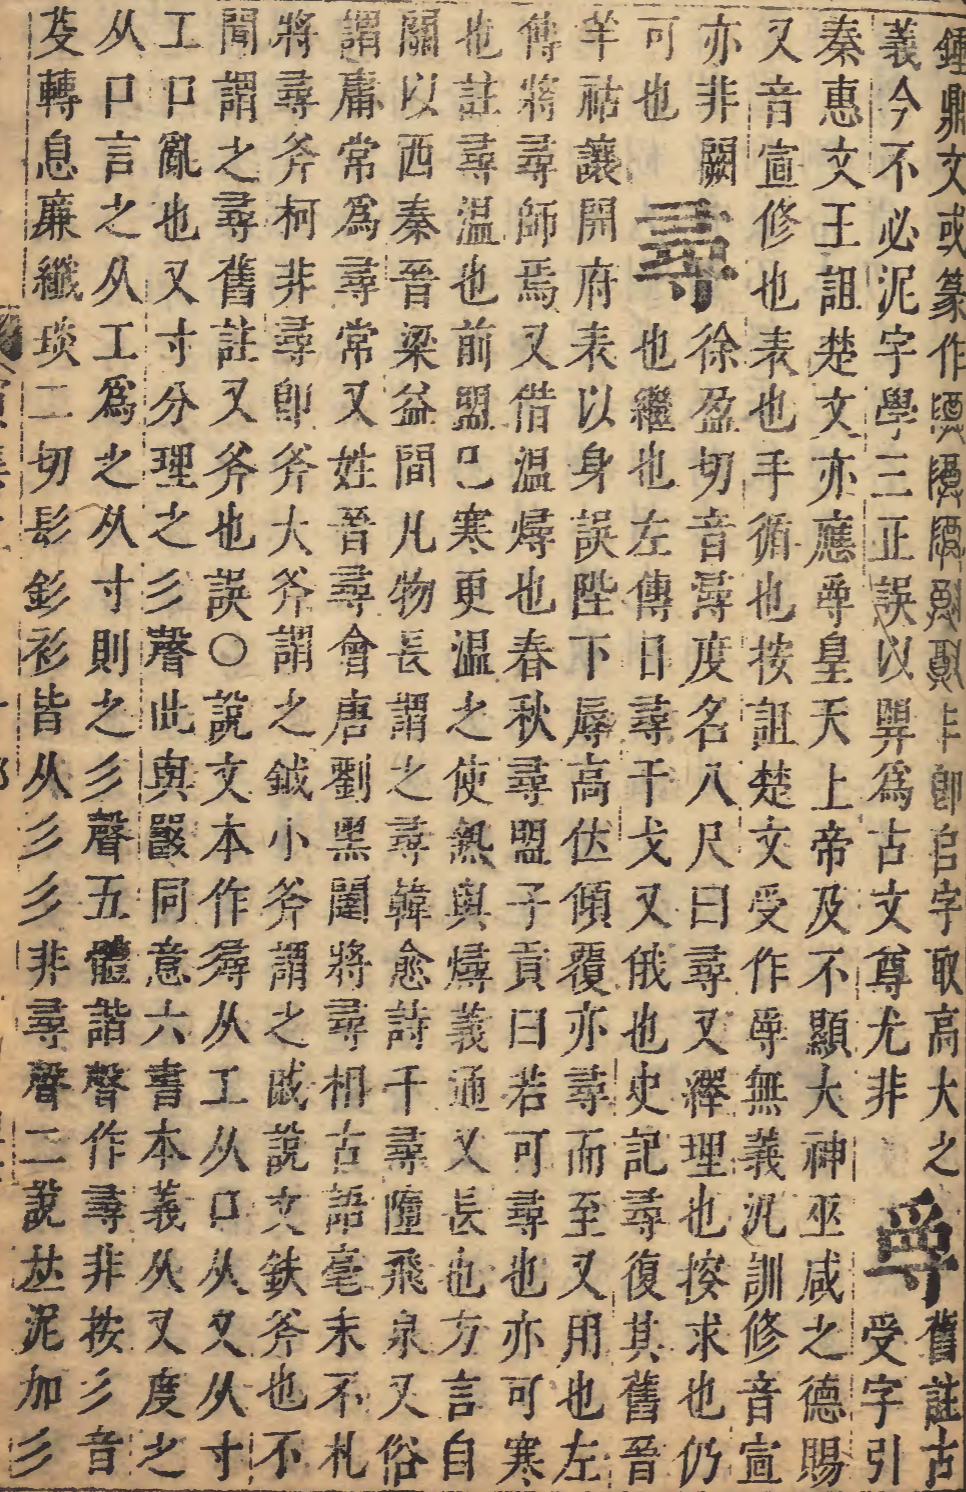 鍾鼎文或篆作非卽召字取高大之
義今不必泥字學三正誤以㢲爲古文尊尤非
𤔌舊註古
受字引
秦惠文王詛楚文亦應𤔌皇天上帝及不顯大神巫咸之德賜
又音宣修也表也手循也按詛楚文受作𤔌無義汎訓修音宣
亦非闕
可也
尋徐盈切音潯度名八尺曰尋又繹理也按求也仍
也繼也左傳日尋干戈又俄也史記尋復其舊晉
羊祜讓開府表以身誤陛下辱高位傾覆亦尋而至又用也左
傳將尋師焉又借溫燖也春秋尋盟子貢曰若可尋也亦可寒
也註尋溫也前盟已寒更溫之使熱與燖義通又長也方言自
關以西秦晉梁益間凡物長謂之尋韓愈詩千尋墮飛泉又俗
謂庸常爲尋常又姓晉尋會唐劉黑闥將尋相古語毫末不札
將尋斧柯非尋卽斧大斧謂之鉞小斧謂之戚說文鈇斧也不
聞謂之尋舊註又斧也誤○說文本作𢒫从工从口从又从寸
工口亂也又寸分理之彡聲此與㗊同意六書本義从又度之
从口言之从工爲之从寸則之彡聲五體諧聲作尋非按彡音
芟轉息廉纖琰二切髟釤衫皆从彡彡非尋聲二說𠀤泥加彡